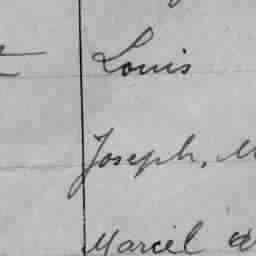 Louis
Joseph, M
Marcel